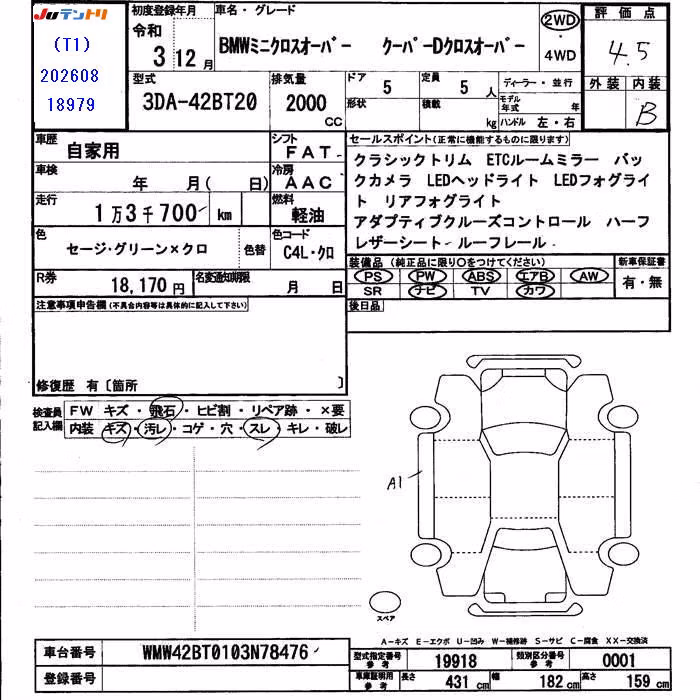 JUテントリ
(T1)
202608
18979
初度登録年月
令和
3 12月
車名・グレード
BMWミニクロスオーバー クーパーDクロスオーバー
2WD
・
4WD
評価点
4.5
外装 内装
B
型式
3DA-42BT20
排気量
2000
CC
ドア 5
形状
定員 5人
積載 kg
ディーラー・並行
モデル年式 年
ハンドル 左・右
車歴
自家用
シフト
FAT
車検
年 月( 日)
冷房
AAC
走行
1万3千700 km
燃料
軽油
色
セージ・グリーン×クロ
色替
色コード
C4L・クロ
R券
18,170円
名変通知期限
月 日
セールスポイント(正常に機能するものに限ります)
クラシックトリム ETCルームミラー バッ
クカメラ LEDヘッドライト LEDフォグライ
ト リアフォグライト
アダプティブクルーズコントロール ハーフ
レザーシート ルーフレール
装備品(純正品に限り○をつけてください)
新車保証書
PS PW ABS エアB AW
SR ナビ TV カワ
有・無
後日品
注意事項申告欄(不具合内容等は具体的に記入して下さい)
修復歴 有〔箇所 〕
検査員記入欄
FW キズ・飛石・ヒビ割・リペア跡・×要
内装 キズ・汚レ・コゲ・穴・スレ・キレ・破レ
A1
スペア
A-キズ E-エクボ U-凹み W-補修跡 S-サビ C-腐食 XX-交換済
車台番号
WMW42BT0103N78476
登録番号
型式指定番号
参考
19918
類別区分番号
参考
0001
車庫証明用
参考
長さ 431cm 幅 182cm 高さ 159cm